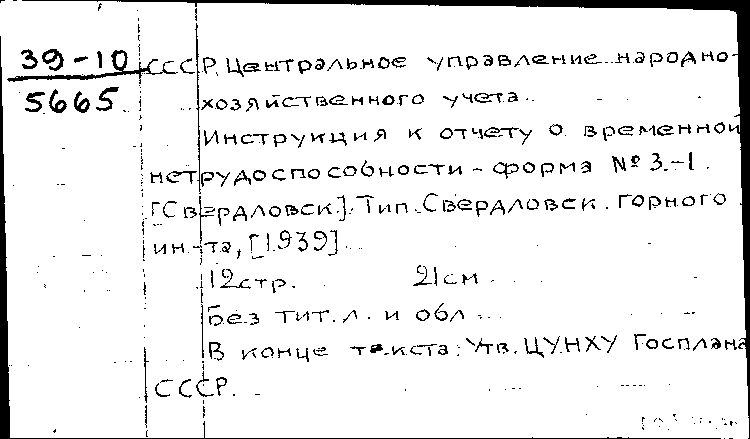 39-10
5665
СССР. Центральное управление народно-
хозяйственного учета.
Инструкция к отчету о временной
нетрудоспособности - форма № 3-1.
[Свердловск]. Тип. Свердловск. горного
ин-та, [1939].
12стр. 21см
Без тит. л. и обл.
В конце текста: Утв. ЦУНХУ Госплана
СССР.